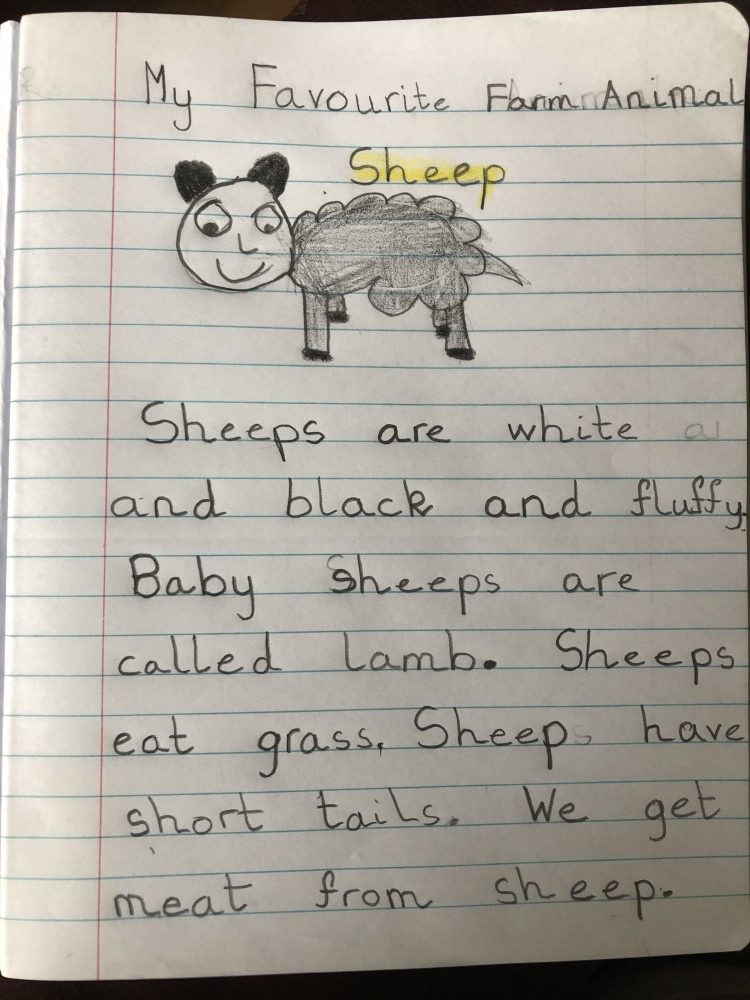 My Favourite Farm Animal
Sheep
Sheeps are white
and black and fluffy.
Baby sheeps are
called lamb. Sheeps
eat grass, Sheep have
short tails. We get
meat from sheep.